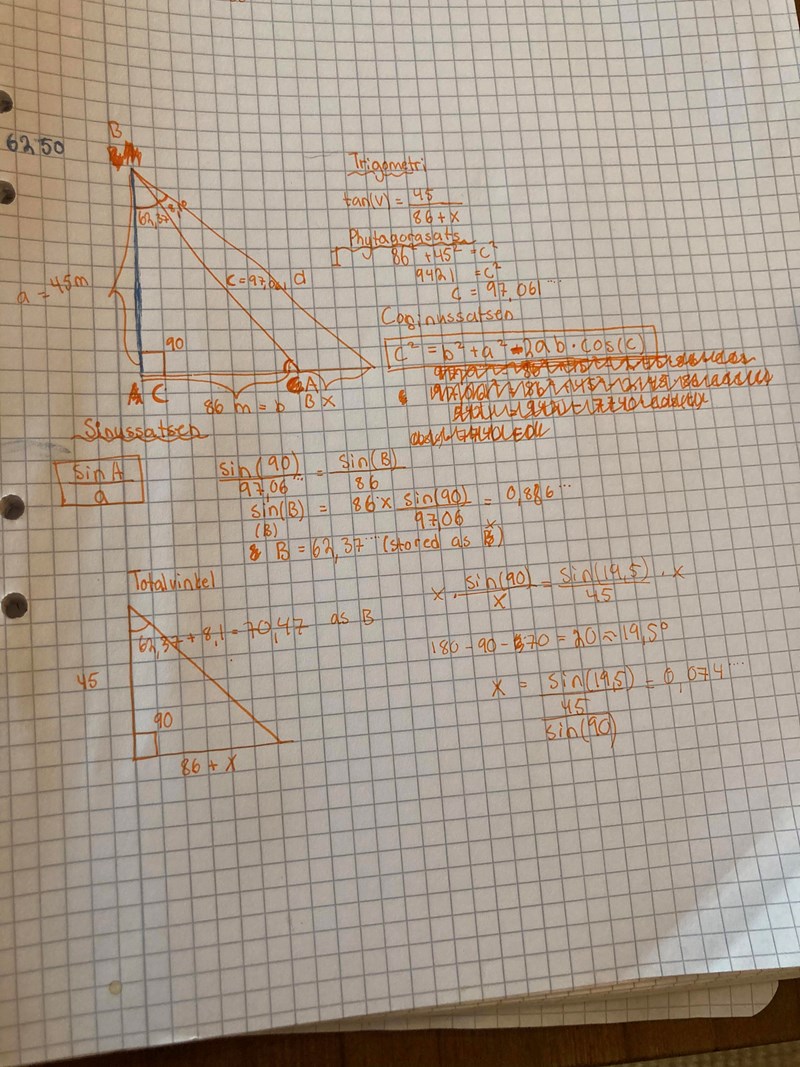 6250
B
62,37 8,1
a = 45m
c = 97,0 d
90
C A
86 m = b B x
Trigometri
tan(v) = 45
86 + x
Phytagorasats
86² + 45² = C²
9421 = C²
C = 97,061...
Cosinussatsen
C² = b² + a² - 2ab · cos(c)
Sinussatsen
sin A
a
sin(90) = sin(B)
97,06... 86
sin(B) = 86 × sin(90) = 0,886...
97,06
(B)
B = 62,37... (stored as B)
Totalvinkel
62,37 + 8,1 = 70,47 as B
45
90
86 + x
x · sin(90) = sin(19,5) · x
x 45
180 - 90 - 70 = 20 ≈ 19,5°
x = sin(19,5) = 0,074...
45
sin(90)